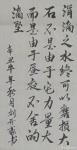 涓滴之水终可以磨损大
石不是由于它力量大
而是由于昼夜不舍的
滴坠
辛丑年秋月刘